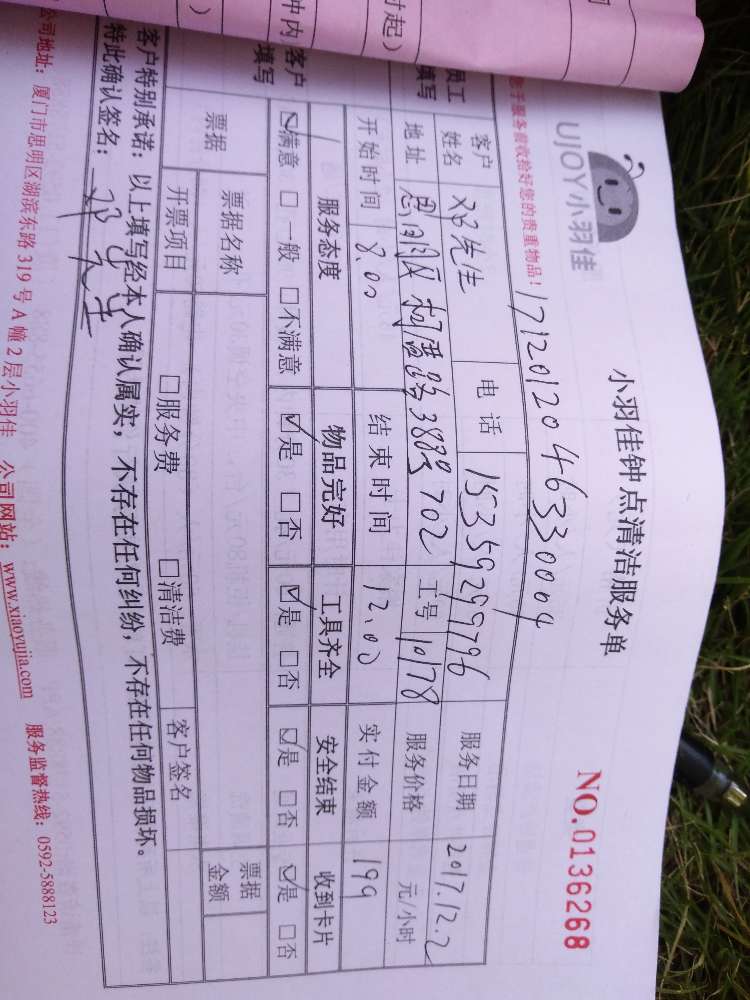 时起）
中内
客户
填写
员工
填写
UJOY小羽佳
小羽佳钟点清洁服务单
NO.0136268
1712012046330004
数于服务前收拾好您的贵重物品！
客户姓名 邓先生 电话 15359299796 服务日期 2017.12.2
地址 思明区 702 工号 10178 服务价格 元/小时
开始时间 8.00 结束时间 12.00 实付金额 199
服务态度 物品完好 工具齐全 安全结束 收到卡片
☑满意 □一般 □不满意 ☑是 □否 ☑是 □否 ☑是 □否 ☑是 □否
票据 票据名称 票据金额
开票项目 □服务费 □清洁费 客户签名
客户特别承诺：以上填写经本人确认属实，不存在任何纠纷，不存在任何物品损坏。
特此确认签名：邓先生
公司地址：厦门市思明区湖滨东路 319 号 A 幢 2 层小羽佳 公司网站：www.xiaoyujia.com 服务监督热线：0592-5888123